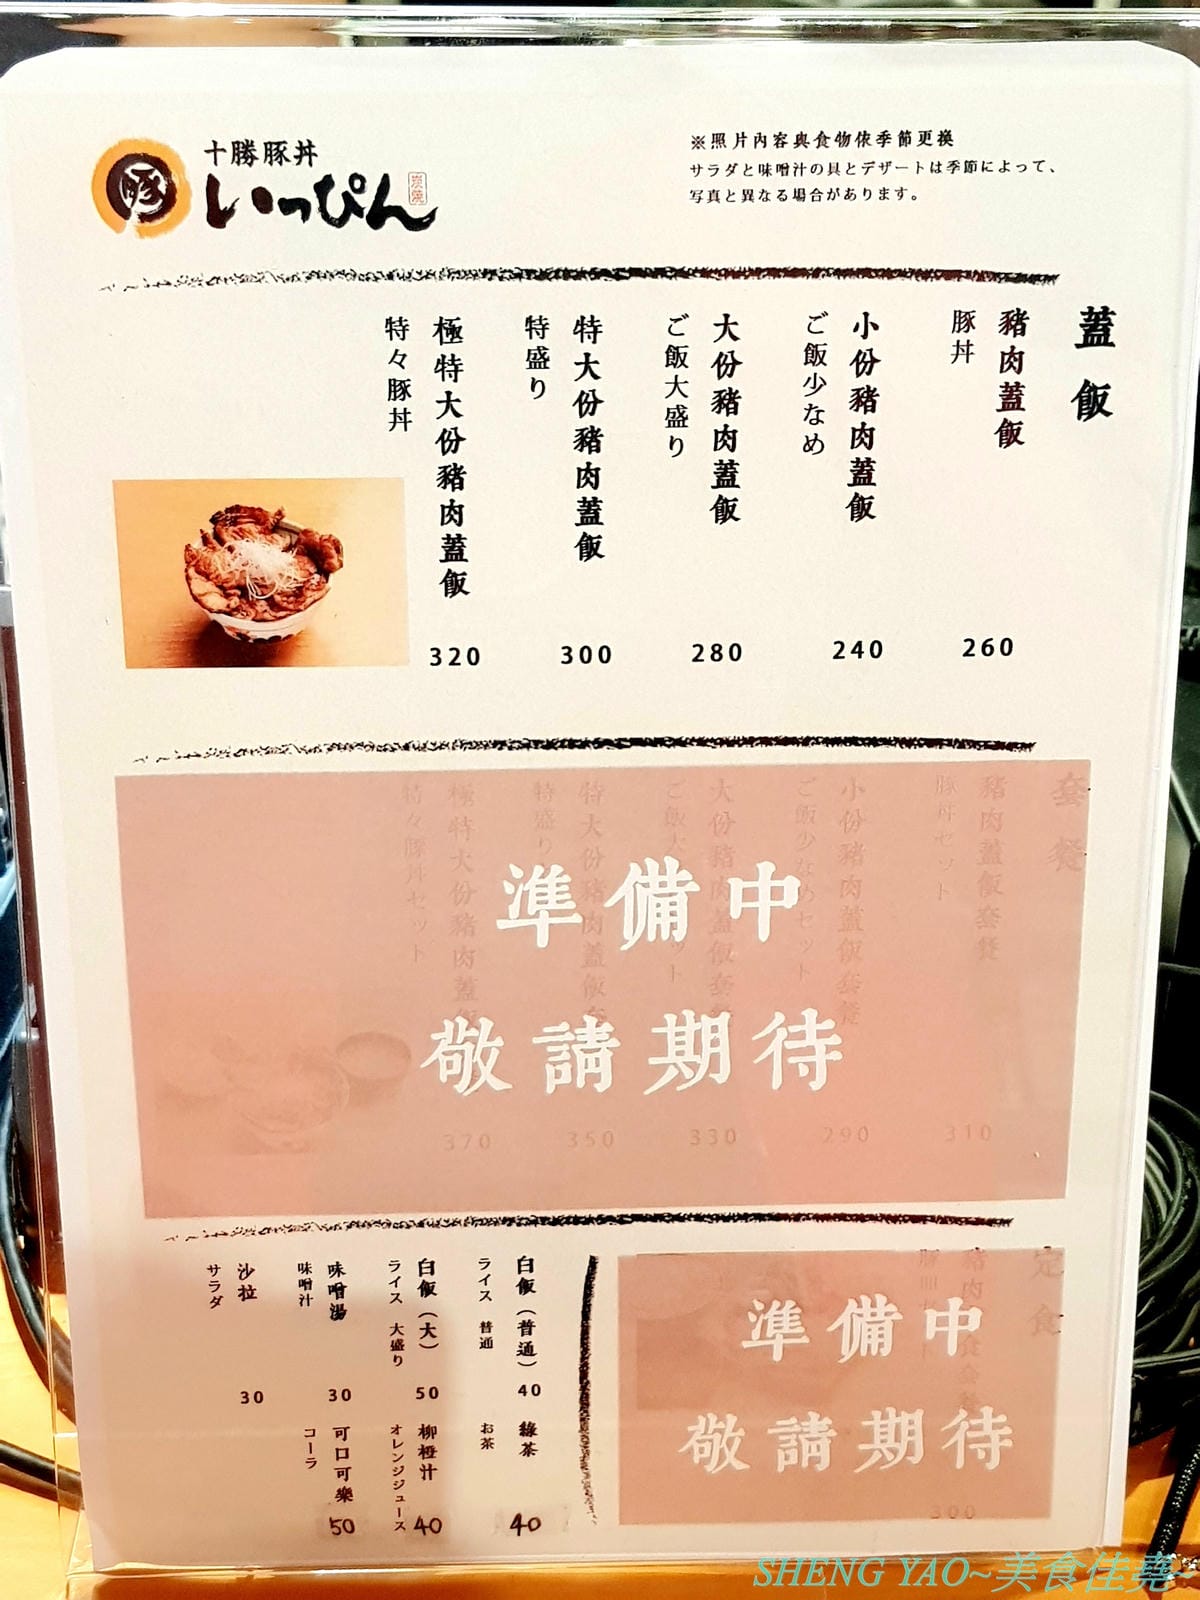 十勝豚丼
いっぴん
炭焼
豚
※照片內容與食物依季節更換
サラダと味噌汁の具とデザートは季節によって、
写真と異なる場合があります。
蓋飯
豬肉蓋飯
豚丼
260
小份豬肉蓋飯
ご飯少なめ
240
大份豬肉蓋飯
ご飯大盛り
280
特大份豬肉蓋飯
特盛り
300
極特大份豬肉蓋飯
特々豚丼
320
套餐
豬肉蓋飯套餐
豚丼セット
310
小份豬肉蓋飯套餐
ご飯少なめセット
290
大份豬肉蓋飯套餐
330
350
極特大份豬肉蓋飯
特々豚丼セット
370
準備中
敬請期待
定食
300
準備中
敬請期待
白飯（普通）
ライス 普通
40
白飯（大）
ライス 大盛り
50
味噌湯
味噌汁
30
沙拉
サラダ
30
綠茶
お茶
40
柳橙汁
オレンジジュース
40
可口可樂
コーラ
50
SHENG YAO~美食佳堯~